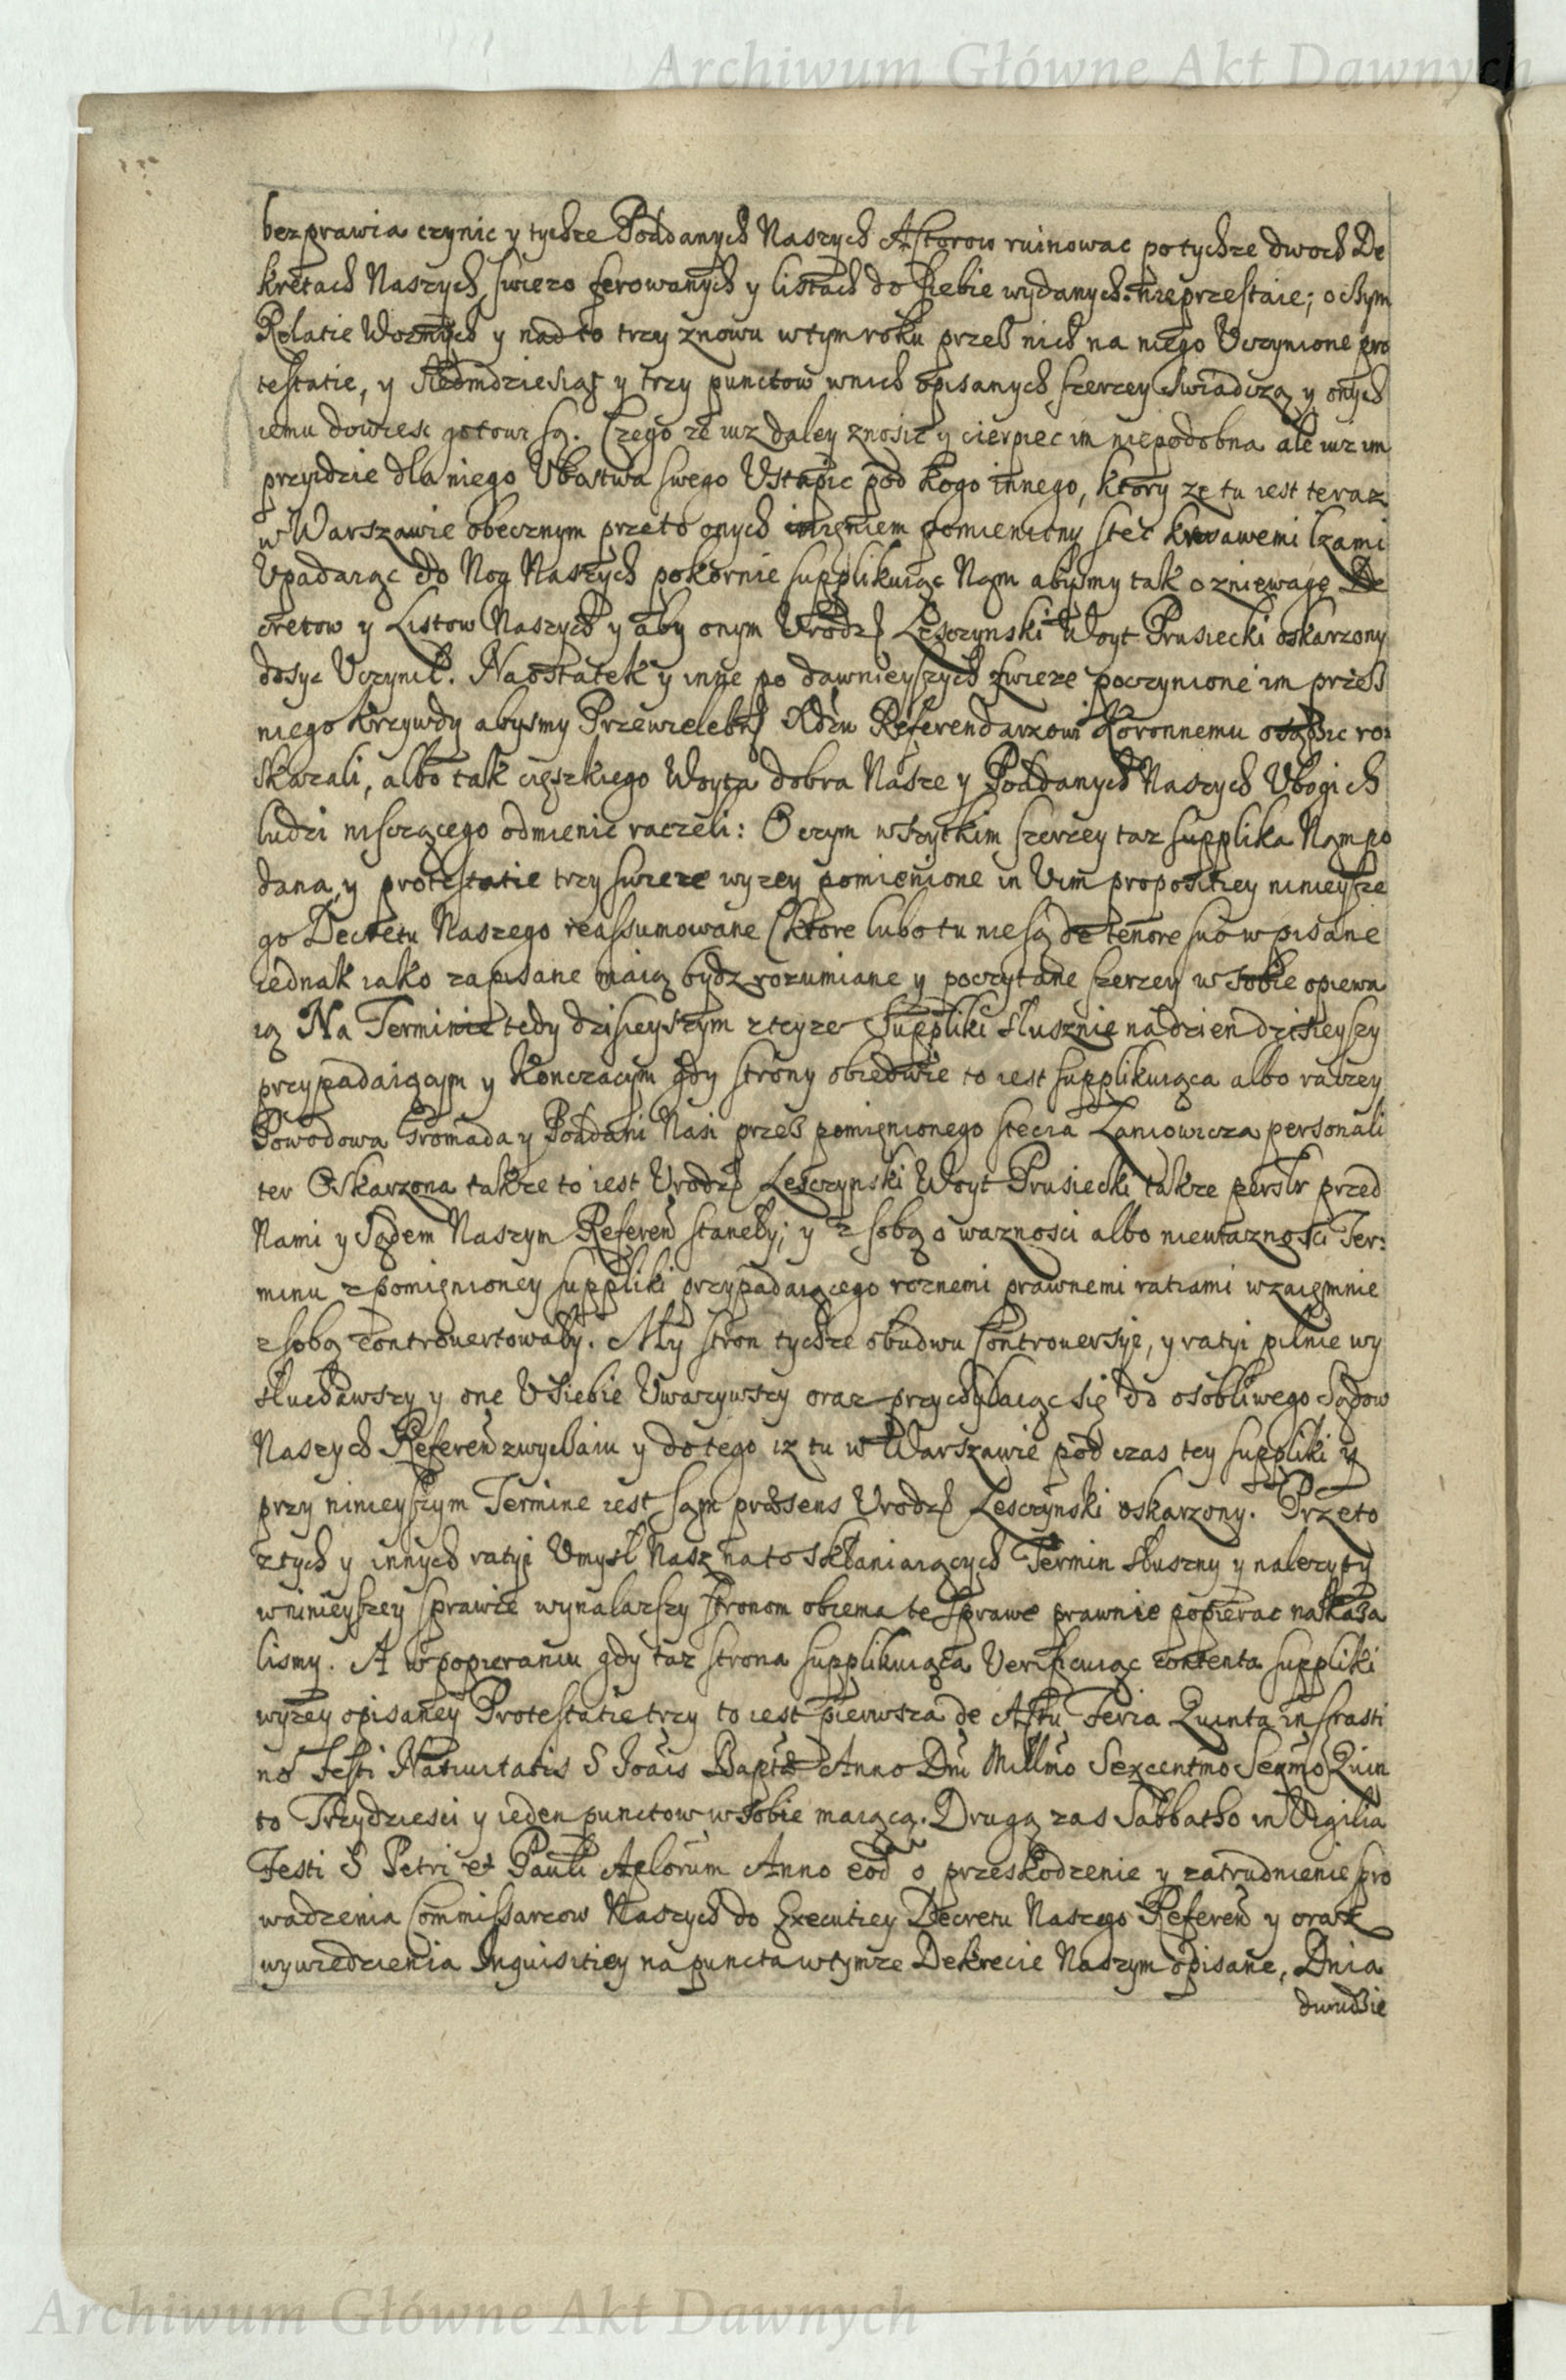 Archiwum Główne Akt Dawnych
bezprawia czynic y tychze Poddanych Naszych Actorow ruinowac po tychze dwoch De
kretach Naszych swiezo ferowanych y listach do siebie wydanych nieprzestaie; o czym
Relatie Woznych y nad to trzy znowu w tym roku przes nich na niego Uczynione pro
testatie, y siedmdziesiąt y trzy punctow w nich opisanych szerzey swiadczą y onych
iemu dowiesc gotowi są. Czego ze iuz daley znosic y cierpiec im niepodobna ale iuz im
przyidzie dla niego Ubostwa swego Ustąpic pod kogo innego, ktory ze tu iest teraz
w Warszawie obecznym przeto onych imieniem pomieniony Stec krwawemi łzami
Upadaiąc do Nog Naszych pokornie supplikuiąc Nam abysmy tak o zniewagę De
cretow y Listow Naszych y aby onym Urodz Lesczynski Woyt Prusiecki oskarzony
dosyc Uczynił. Na ostatek y inne po dawnieyszych swieze poczynione im przes
niego krzywdy abysmy Przewielebn Xdzu Referendarzowi Koronnemu osądzic ro:
skazali, albo tak cięszkiego Woyta dobra Nasze y Poddanych Naszych Ubogich
ludzi nisczącego odmienic raczeli: O czym wszytkim szerzey taz supplika Nam po
dana, y protestatie trzy swieze wyzey pomienione in Vim propositiey ninieysze
go Decretu Naszego reassumowane (ktore lubo tu nie są de tenore suo wpisane
iednak iako zapisane maią bydz rozumiane y poczytane szerzey w sobie opiewa
ią Na Terminie tedy dzisieyszym z teyze Suppliki słusznie na dzien dzisieyszy
przypadaiącym y konczacym gdy strony obiedwie to iest supplikuiąca albo raczey
Powodowa Gromada y Poddani Nasi przes pomienionego Stecia Laniowicza personali
ter Oskarzona takze to iest Urodz Lesczynski Woyt Prusiecki takze perslr przed
Nami y Sądem Naszym Referen staneły; y z sobą o waznosci albo niewaznosci Ter:
minu z pomienioney suppliki przypadaiącego roznemi prawnemi ratiami wzaięmnie
z sobą controwertowały. My stron tychze obudwu Controuersye, y ratyi pilnie wy
słuchawszy y one U siebie Uwazywszy oraz przychylaiąc się do osobliwego Sądow
Naszych Referen zwyczaiu y do tego iz tu w Warszawie pod czas tey suppliki y
przy ninieyszym Termine iest sąm præsens Urodz Lesczynski oskarzony. Przeto
z tych y innych ratyi Umysł Nasz na to skłaniaiących Termin słuszny y nalezyty
w ninieyszey sprawie wynalazszy stronom obiema tę sprawę prawnie popierac nakaza
lismy. A w popieraniu gdy taz strona supplikuiąca Verificuiąc contenta suppliki
wyzey opisaney Protestatie trzy to iest pierwsza de Actu Feria Quinta in Crasti
no Festi Natiuitatis S Joais Bapta Anno Dni Millmo Sexcentmo Sexmo Quin
to Trzydziesci y ieden punctow w sobie maiącą. Drugą zas Sabbatho in Vigilia
Festi S Petri et Pauli Aplorum Anno eod o przeskodzenie y zatrudnienie pro
wadzenia Commissarzow Naszych do Executiey Decretu Naszego Referen y oraz
wywiedzienia Inquisitiey na puncta w tymze Dekrecie Naszym opisane, Dnia
dwudzie
Archiwum Główne Akt Dawnych